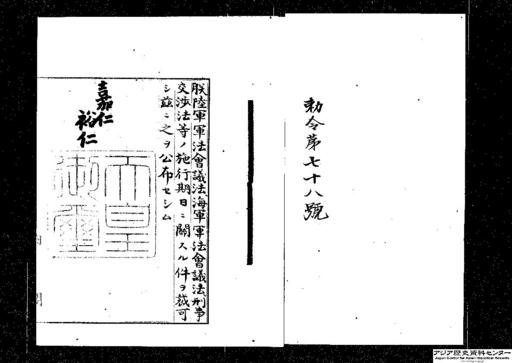 勅令第七十八號
朕陸軍軍法會議法海軍軍法會議法刑事
交渉法等ノ施行期日ニ關スル件ヲ裁可
シ茲ニ之ヲ公布セシム
嘉仁
裕仁
天皇
御璽
アジア歴史資料センター
Japan Center for Asian Historical Records